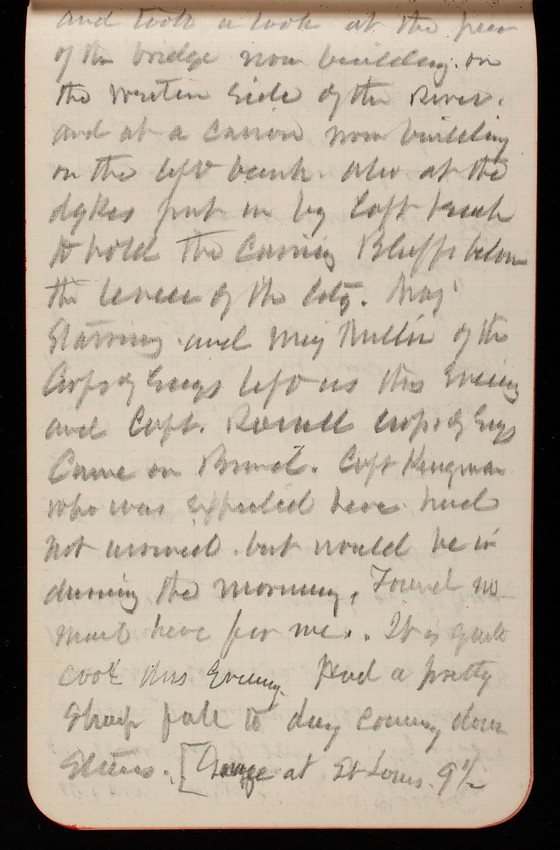 and took a look at the pier
of the bridge now building on
the Western side of the River.
and at a caisson now building
on the left bank. also at the
dykes put in by Capt
to hold the caving Bluffs below
the levee of the City. Maj
and Maj of the
Corps of Engs left us this Evening
and Capt. Corps of Engs
Came on Board. Capt Kingman
who was expected here had
not arrived but would be in
during the morning, Found no
mail here for me. It is quite
cool this Evening. Had a pretty
sharp fall to day coming down
Stairs. [Gauge at St Louis. 9